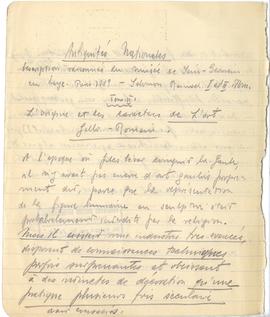 Antiquités Nationales
Description raisonnée du Musée de Saint-Germain
en Laye. Paris - Salomon Reinach
L'origine et les caractères de L'art
Gallo-Romain.
A l'époque où Jules César conquit la Gaule
il n'y avait pas encore d'art gaulois propre-
ment dit, parce que la représentation
de la figure humaine en sculpture était
probablement interdite par la religion.
Mais il existait une industrie très avancée,
disposant de connaissances techniques
parfois surprenantes et obéissant
à des principes de décoration qu'une
pratique plusieurs fois séculaire
avait consacrés.